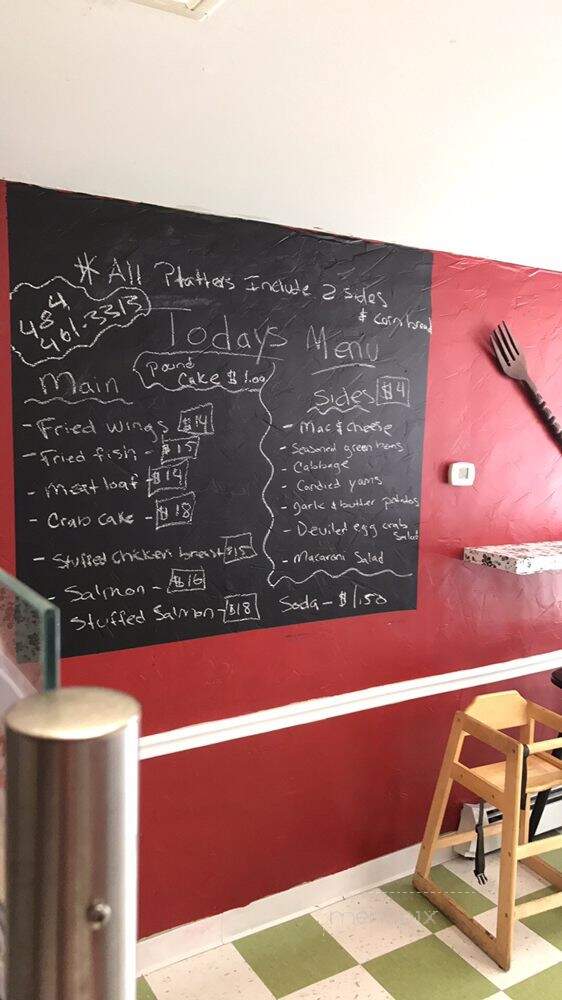 * All Platters Include 2 sides
& Corn bread
484
461.3313
Todays Menu
Pound
Cake $1.00
Main
- Fried wings $14
- Fried fish - $15
- Meat loaf - $14
- Crab Cake - $18
- Stuffed Chicken breast $15
- Salmon - $16
Stuffed Salmon - $18
Sides $4
- Mac & cheese
- Seasoned green beans
- Cabbage
- Candied yams
- garlic & butter potatoes
- Deviled egg crab
Salad
- Macaroni Salad
Soda - $1.50